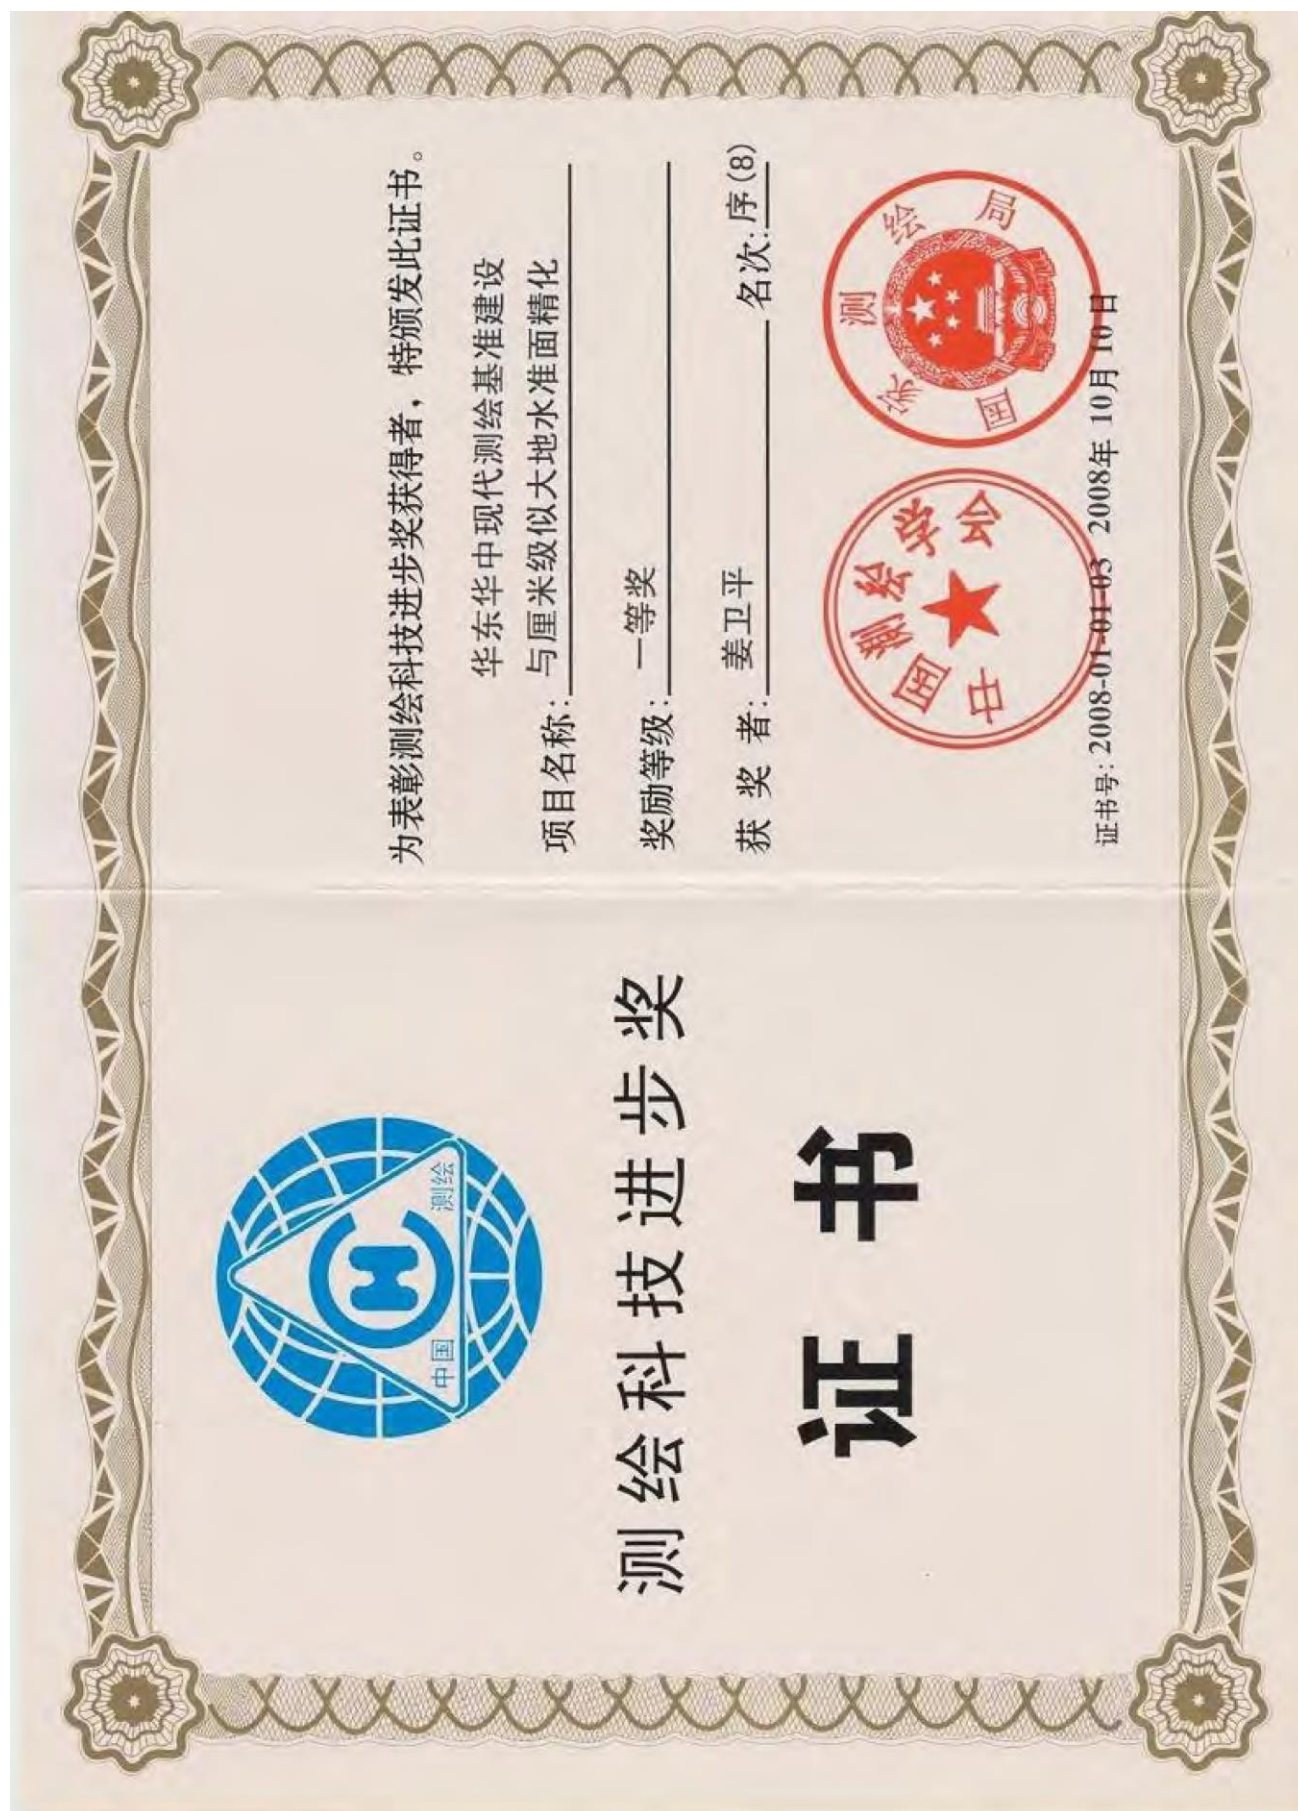 中国 测绘
测绘科技进步奖
证书
为表彰测绘科技进步奖获得者，特颁发此证书。
华东华中现代测绘基准建设
项目名称：与厘米级似大地水准面精化
奖励等级：一等奖
获奖者：姜卫平 名次：序(8)
中国测绘学会
国家测绘局
证书号：2008-01-01-03 2008年10月10日